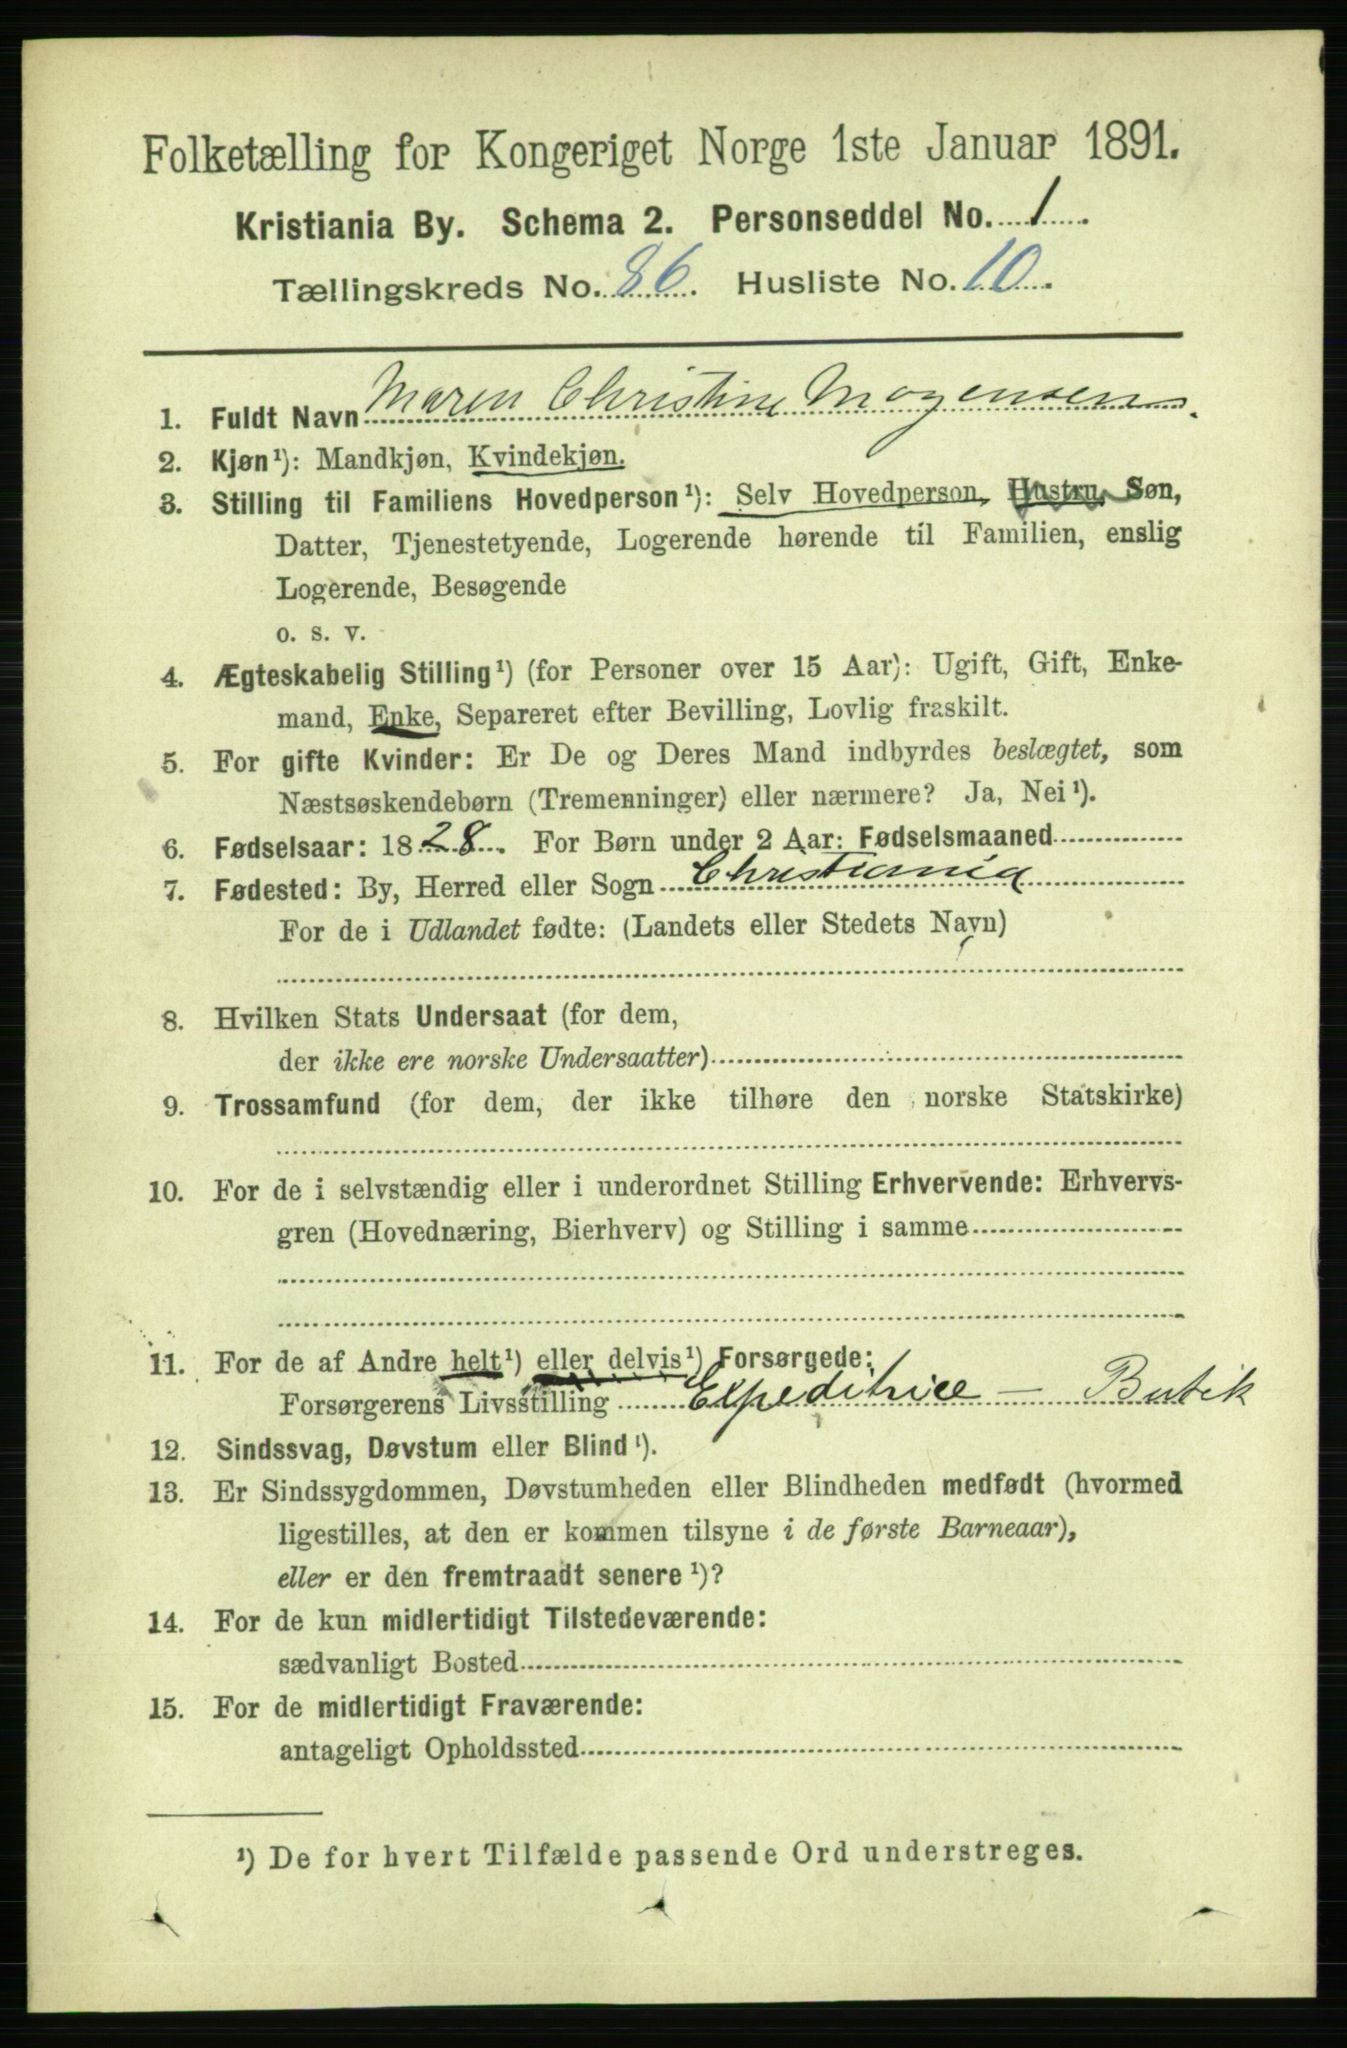 Folketælling for Kongeriget Norge 1ste Januar 1891.
Kristiania By. Schema 2. Personseddel No. 1.
Tællingskreds No. 86. Husliste No. 10.
1. Fuldt Navn Maren Christine Mogensen.
2. Kjøn¹): Mandkjøn, Kvindekjøn.
3. Stilling til Familiens Hovedperson¹): Selv Hovedperson, Hustru, Søn,
Datter, Tjenestetyende, Logerende hørende til Familien, enslig
Logerende, Besøgende
o. s. v.
4. Ægteskabelig Stilling¹) (for Personer over 15 Aar): Ugift, Gift, Enke-
mand, Enke, Separeret efter Bevilling, Lovlig fraskilt.
5. For gifte Kvinder: Er De og Deres Mand indbyrdes beslægtet, som
Næstsøskendebørn (Tremenninger) eller nærmere? Ja, Nei¹).
6. Fødselsaar: 1828. For Børn under 2 Aar: Fødselsmaaned
7. Fødested: By, Herred eller Sogn Christiania
For de i Udlandet fødte: (Landets eller Stedets Navn)
8. Hvilken Stats Undersaat (for dem,
der ikke ere norske Undersaatter)
9. Trossamfund (for dem, der ikke tilhøre den norske Statskirke)
10. For de i selvstændig eller i underordnet Stilling Erhvervende: Erhvervs-
gren (Hovednæring, Bierhverv) og Stilling i samme
11. For de af Andre helt¹) eller delvis¹) Forsørgede:
Forsørgerens Livsstilling Expeditrice – Butik
12. Sindssvag, Døvstum eller Blind¹).
13. Er Sindssygdommen, Døvstumheden eller Blindheden medfødt (hvormed
ligestilles, at den er kommen tilsyne i de første Barneaar),
eller er den fremtraadt senere¹)?
14. For de kun midlertidigt Tilstedeværende:
sædvanligt Bosted
15. For de midlertidigt Fraværende:
antageligt Opholdssted
¹) De for hvert Tilfælde passende Ord understreges.